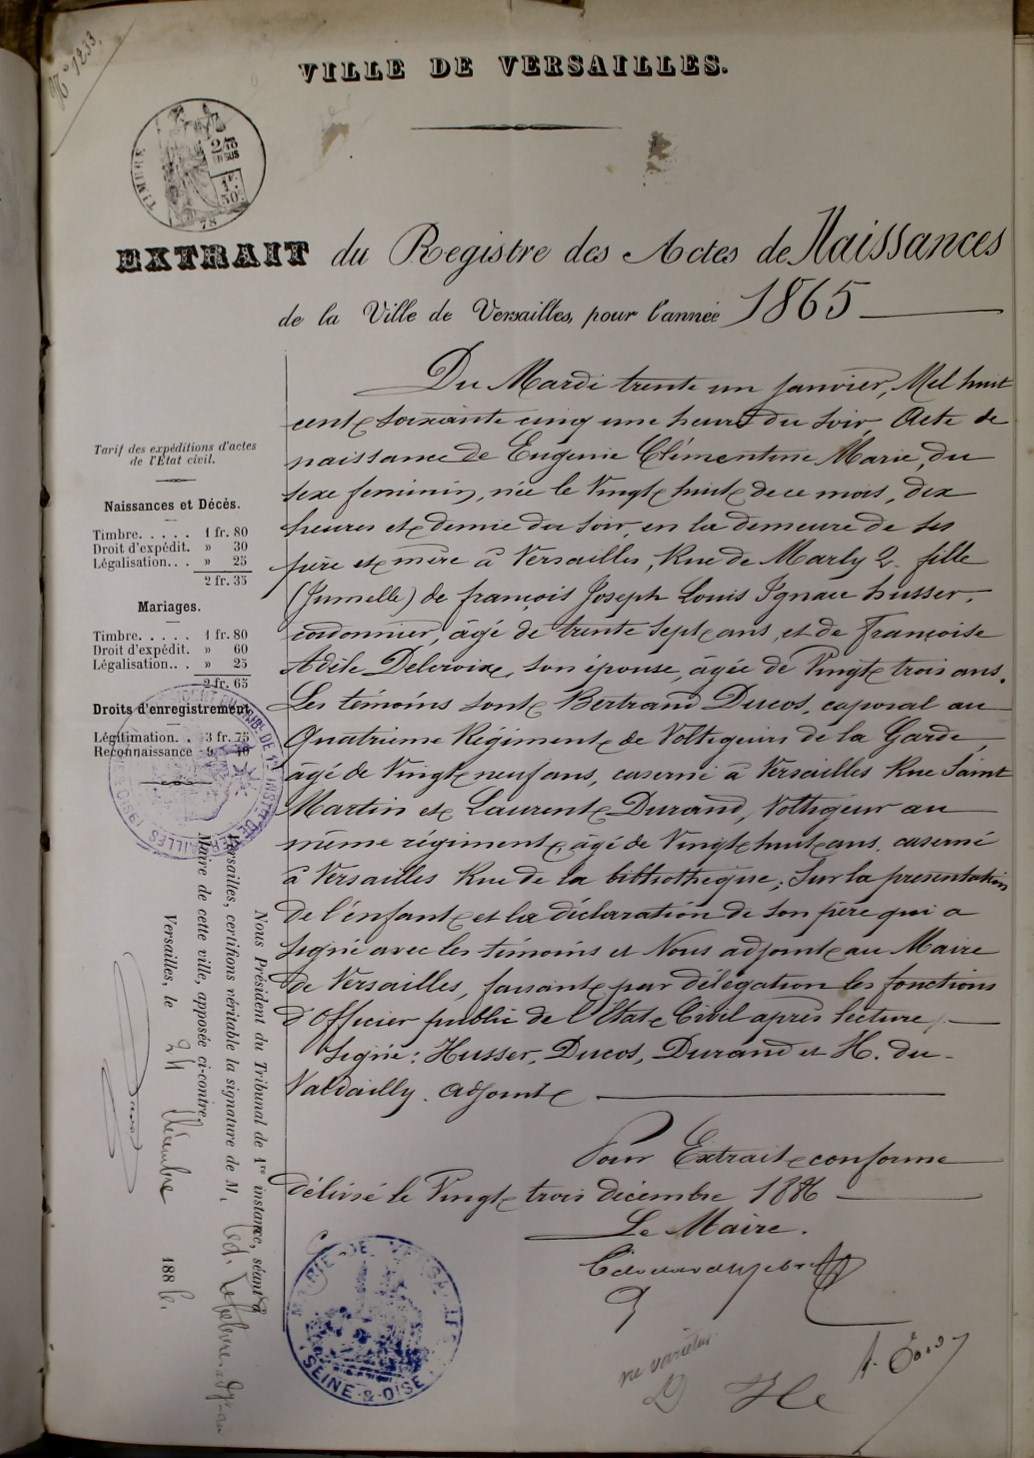 N° 1233.
VILLE DE VERSAILLES.
TIMBRE
2/10
EN SUS
1F
50C
78
EXTRAIT du Registre des Actes de Naissances
de la Ville de Versailles, pour l'année 1865
Du Mardi trente un janvier, Mil huit
cent soixante cinq une heure du soir Acte de
naissance de Eugenie Clémentine Marie, du
sexe feminin, née le Vingt huit de ce mois, dix
heures et demie du soir, en la demeure de ses
père et mère à Versailles, Rue de Marly 2. fille
(Jumelle) de françois Joseph Louis Ignace husser,
cordonnier, âgé de trente sept ans, et de Françoise
Adèle Delcroix, son épouse, âgée de Vingt trois ans.
Les témoins sont Bertrand Ducos, caporal au
Quatrieme Régiment de Voltigeurs de la Garde,
âgé de Vingt neuf ans, caserné à Versailles Rue Saint
Martin et Laurent Durand, Voltigeur au
même régiment, âgé de Vingt huit ans, caserné
à Versailles Rue de la bibliothèque; Sur la presentation
de l'enfant et la déclaration de son père qui a
signé avec les témoins et Nous adjoint au Maire
de Versailles, faisant par délégation les fonctions
d'Officier public de l'Etat Civil après lecture,
Signé: Husser, Ducos, Durand et H. du
Valdailly. adjoint
Pour Extrait conforme
délivré le Vingt trois décembre 1886
Le Maire.
Tarif des expéditions d'actes
de l'État civil.
Naissances et Décès.
Timbre. . . . . 1 fr. 80
Droit d'expédit. » 30
Légalisation. . . » 25
2 fr. 35
Mariages.
Timbre. . . . . 1 fr. 80
Droit d'expédit. » 60
Légalisation. . . » 25
2 fr. 65
Droits d'enregistrement
Légitimation. . 3 fr. 75
Reconnaissance - 9 40
Nous Président du Tribunal de 1re instance, séant à
Versailles, certifions véritable la signature de M. Ed. Lefebvre
Maire de cette ville, apposée ci-contre.
Versailles, le 24 décembre 1886.
MAIRIE DE VERSAILLES
SEINE-&-OISE
ne varietur